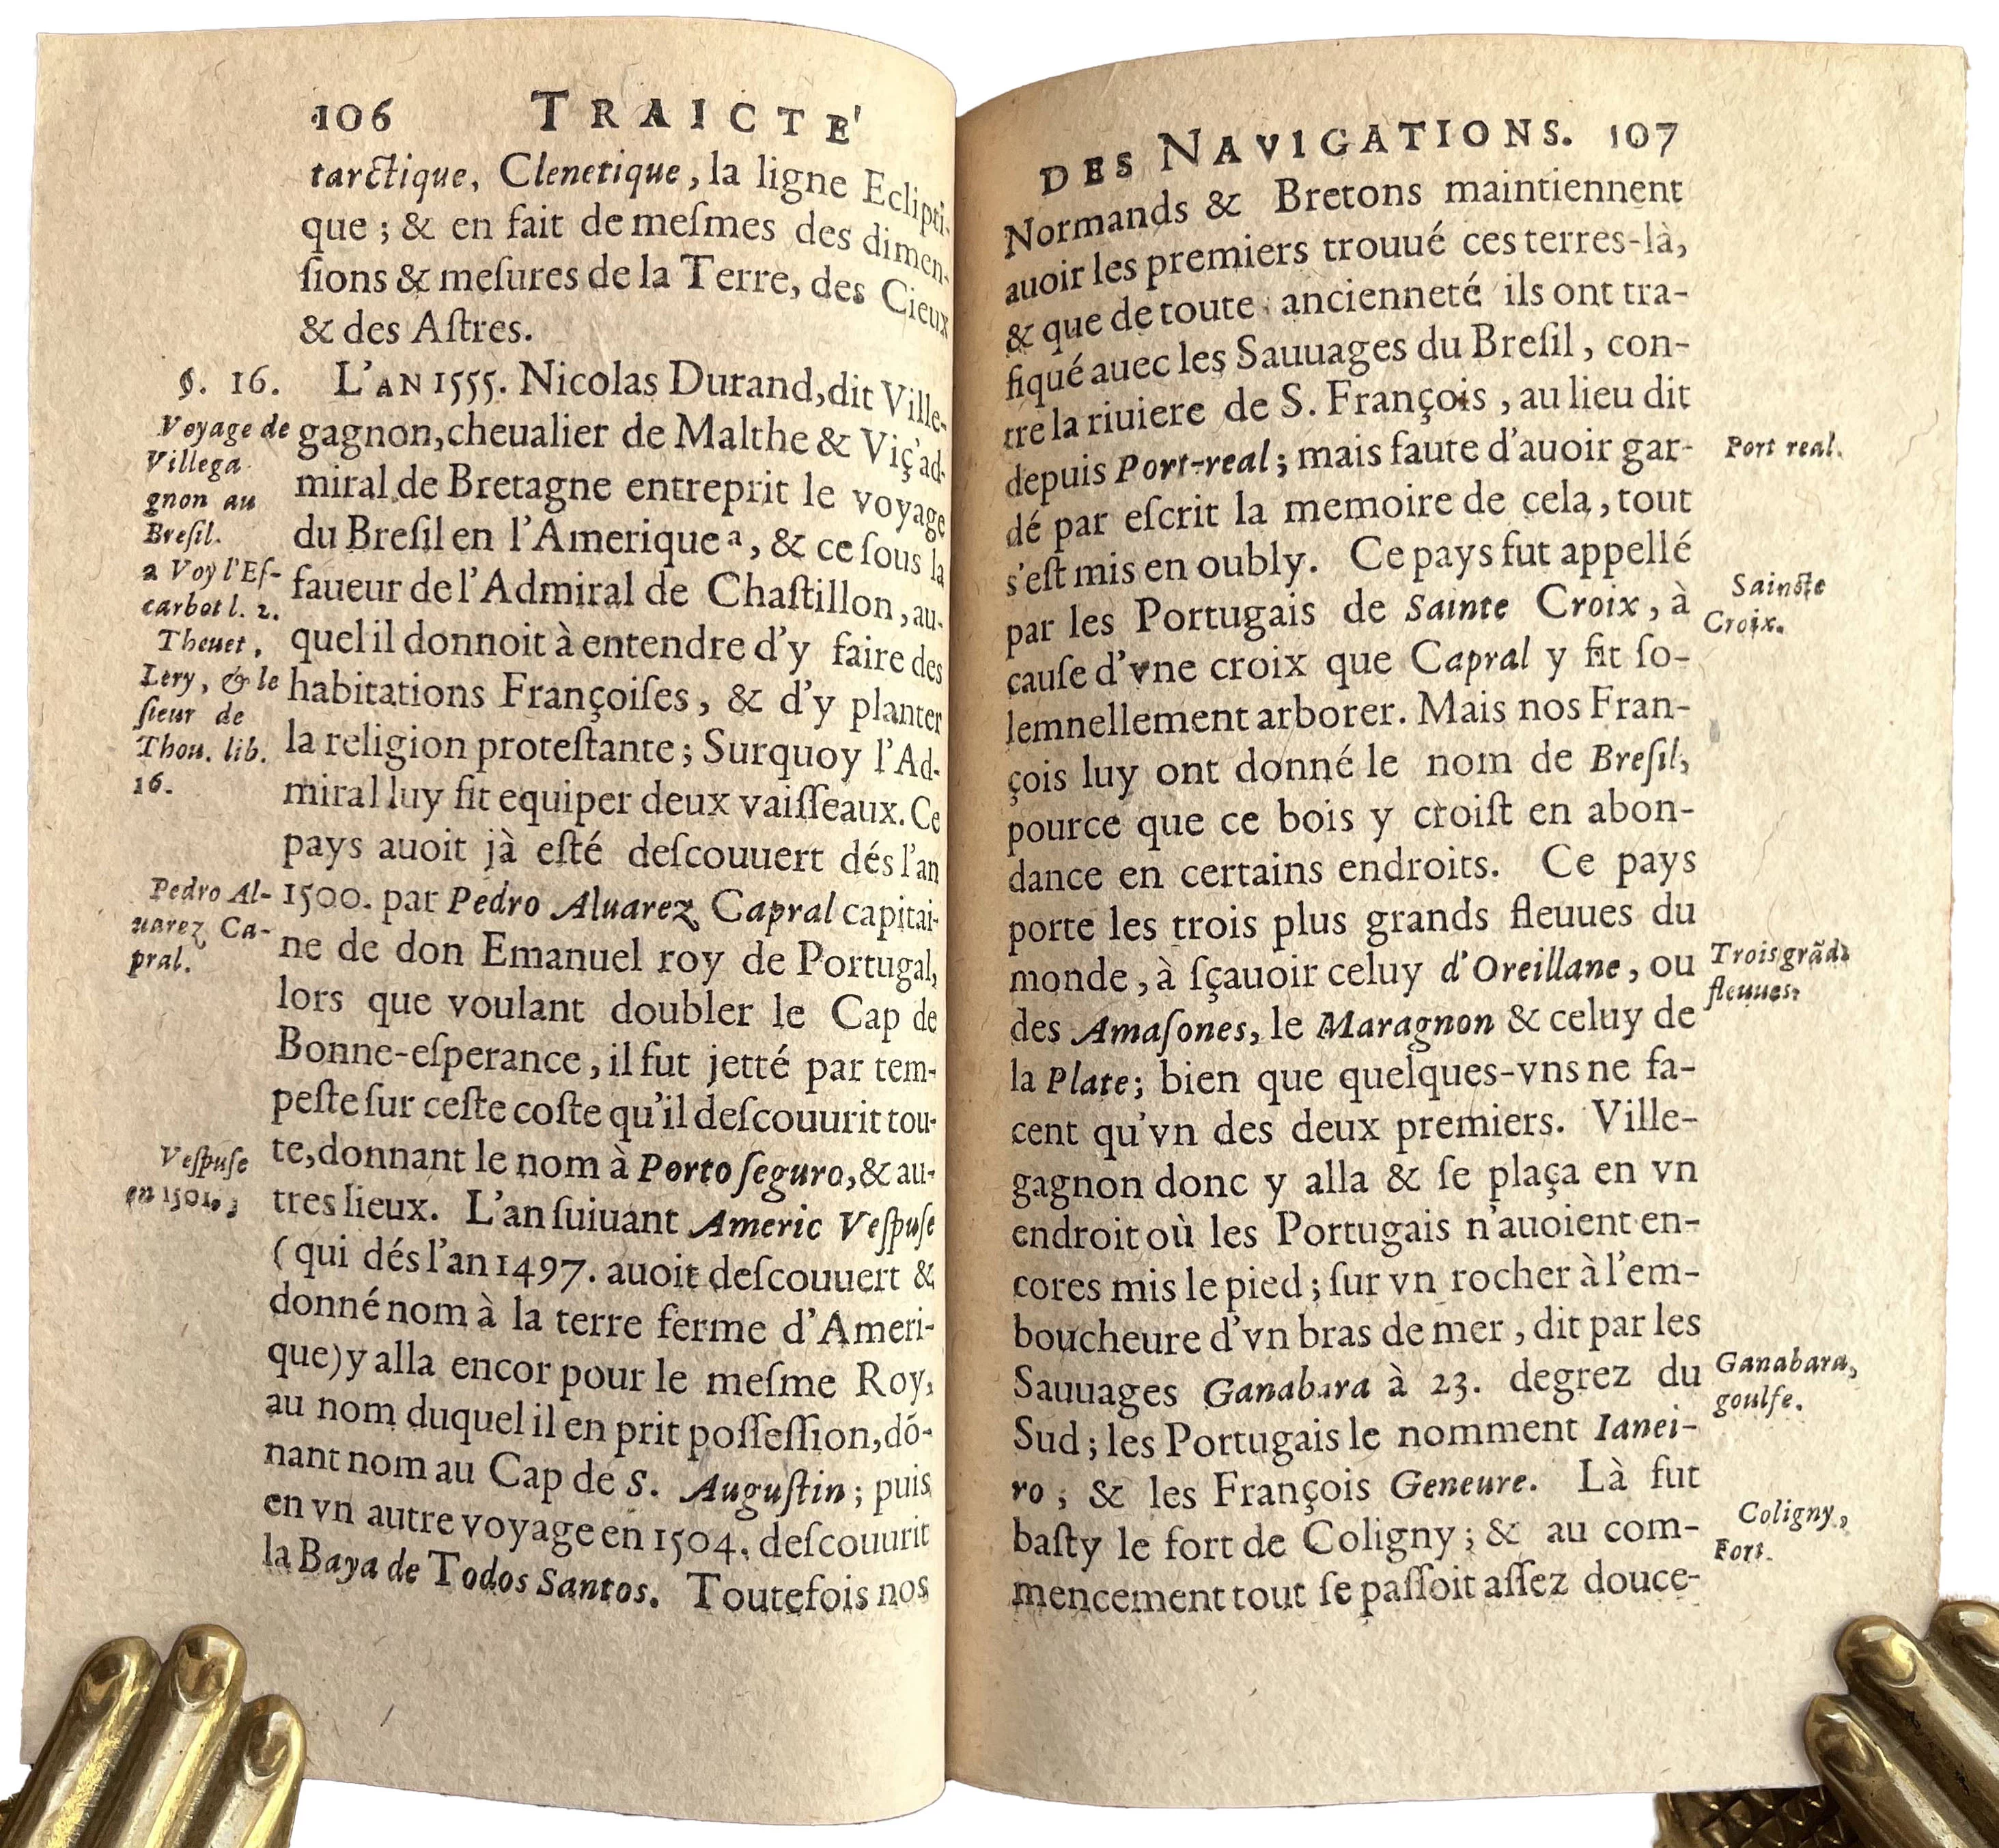 106 TRAICTE'
tarctique, Clenetique, la ligne Eclipti-
que ; & en fait de meſmes des dimen-
ſions & meſures de la Terre, des Cieux
& des Aſtres.
§. 16. L'AN 1555. Nicolas Durand, dit Ville-
gagnon, cheualier de Malthe & Viç'ad-
miral de Bretagne entreprit le voyage
du Breſil en l'Amerique ᵃ, & ce ſous la
faueur de l'Admiral de Chaſtillon, au-
quel il donnoit à entendre d'y faire des
habitations Françoiſes, & d'y planter
la religion proteſtante ; Surquoy l'Ad-
miral luy fit equiper deux vaiſſeaux. Ce
pays auoit jà eſté deſcouuert dés l'an
1500. par Pedro Aluarez Capral capitai-
ne de don Emanuel roy de Portugal,
lors que voulant doubler le Cap de
Bonne-eſperance, il fut jetté par tem-
peſte ſur ceſte coſte qu'il deſcouurit tou-
te, donnant le nom à Porto ſeguro, & au-
tres lieux. L'an ſuiuant Americ Veſpuſe
( qui dés l'an 1497. auoit deſcouuert &
donné nom à la terre ferme d'Ameri-
que) y alla encor pour le meſme Roy,
au nom duquel il en prit poſſeſſion, dō-
nant nom au Cap de S. Auguſtin ; puis
en vn autre voyage en 1504. deſcouurit
la Baya de Todos Santos. Toutefois nos
Voyage de
Villega
gnon au
Breſil.
a Voy l'Eſ-
carbot l. 2.
Theuet,
Lery, & le
ſieur de
Thou. lib.
16.
Pedro Al-
uarez Ca-
pral.
Veſpuſe
en 1501.
DES NAVIGATIONS. 107
Normands & Bretons maintiennent
auoir les premiers trouué ces terres-là,
& que de toute ancienneté ils ont tra-
fiqué auec les Sauuages du Breſil, con-
tre la riuiere de S. François, au lieu dit
depuis Port-real ; mais faute d'auoir gar-
dé par eſcrit la memoire de cela, tout
s'eſt mis en oubly. Ce pays fut appellé
par les Portugais de Sainte Croix, à
cauſe d'vne croix que Capral y fit ſo-
lemnellement arborer. Mais nos Fran-
çois luy ont donné le nom de Breſil,
pource que ce bois y croiſt en abon-
dance en certains endroits. Ce pays
porte les trois plus grands fleuues du
monde, à ſçauoir celuy d'Oreillane, ou
des Amaſones, le Maragnon & celuy de
la Plate ; bien que quelques-vns ne fa-
cent qu'vn des deux premiers. Ville-
gagnon donc y alla & ſe plaça en vn
endroit où les Portugais n'auoient en-
cores mis le pied ; ſur vn rocher à l'em-
boucheure d'vn bras de mer, dit par les
Sauuages Ganabara à 23. degrez du
Sud ; les Portugais le nomment Ianei-
ro ; & les François Geneure. Là fut
baſty le fort de Coligny ; & au com-
mencement tout ſe paſſoit aſſez douce-
Port real.
Saincte
Croix.
Trois grãds
fleuues.
Ganabara,
goulfe.
Coligny,
Fort.